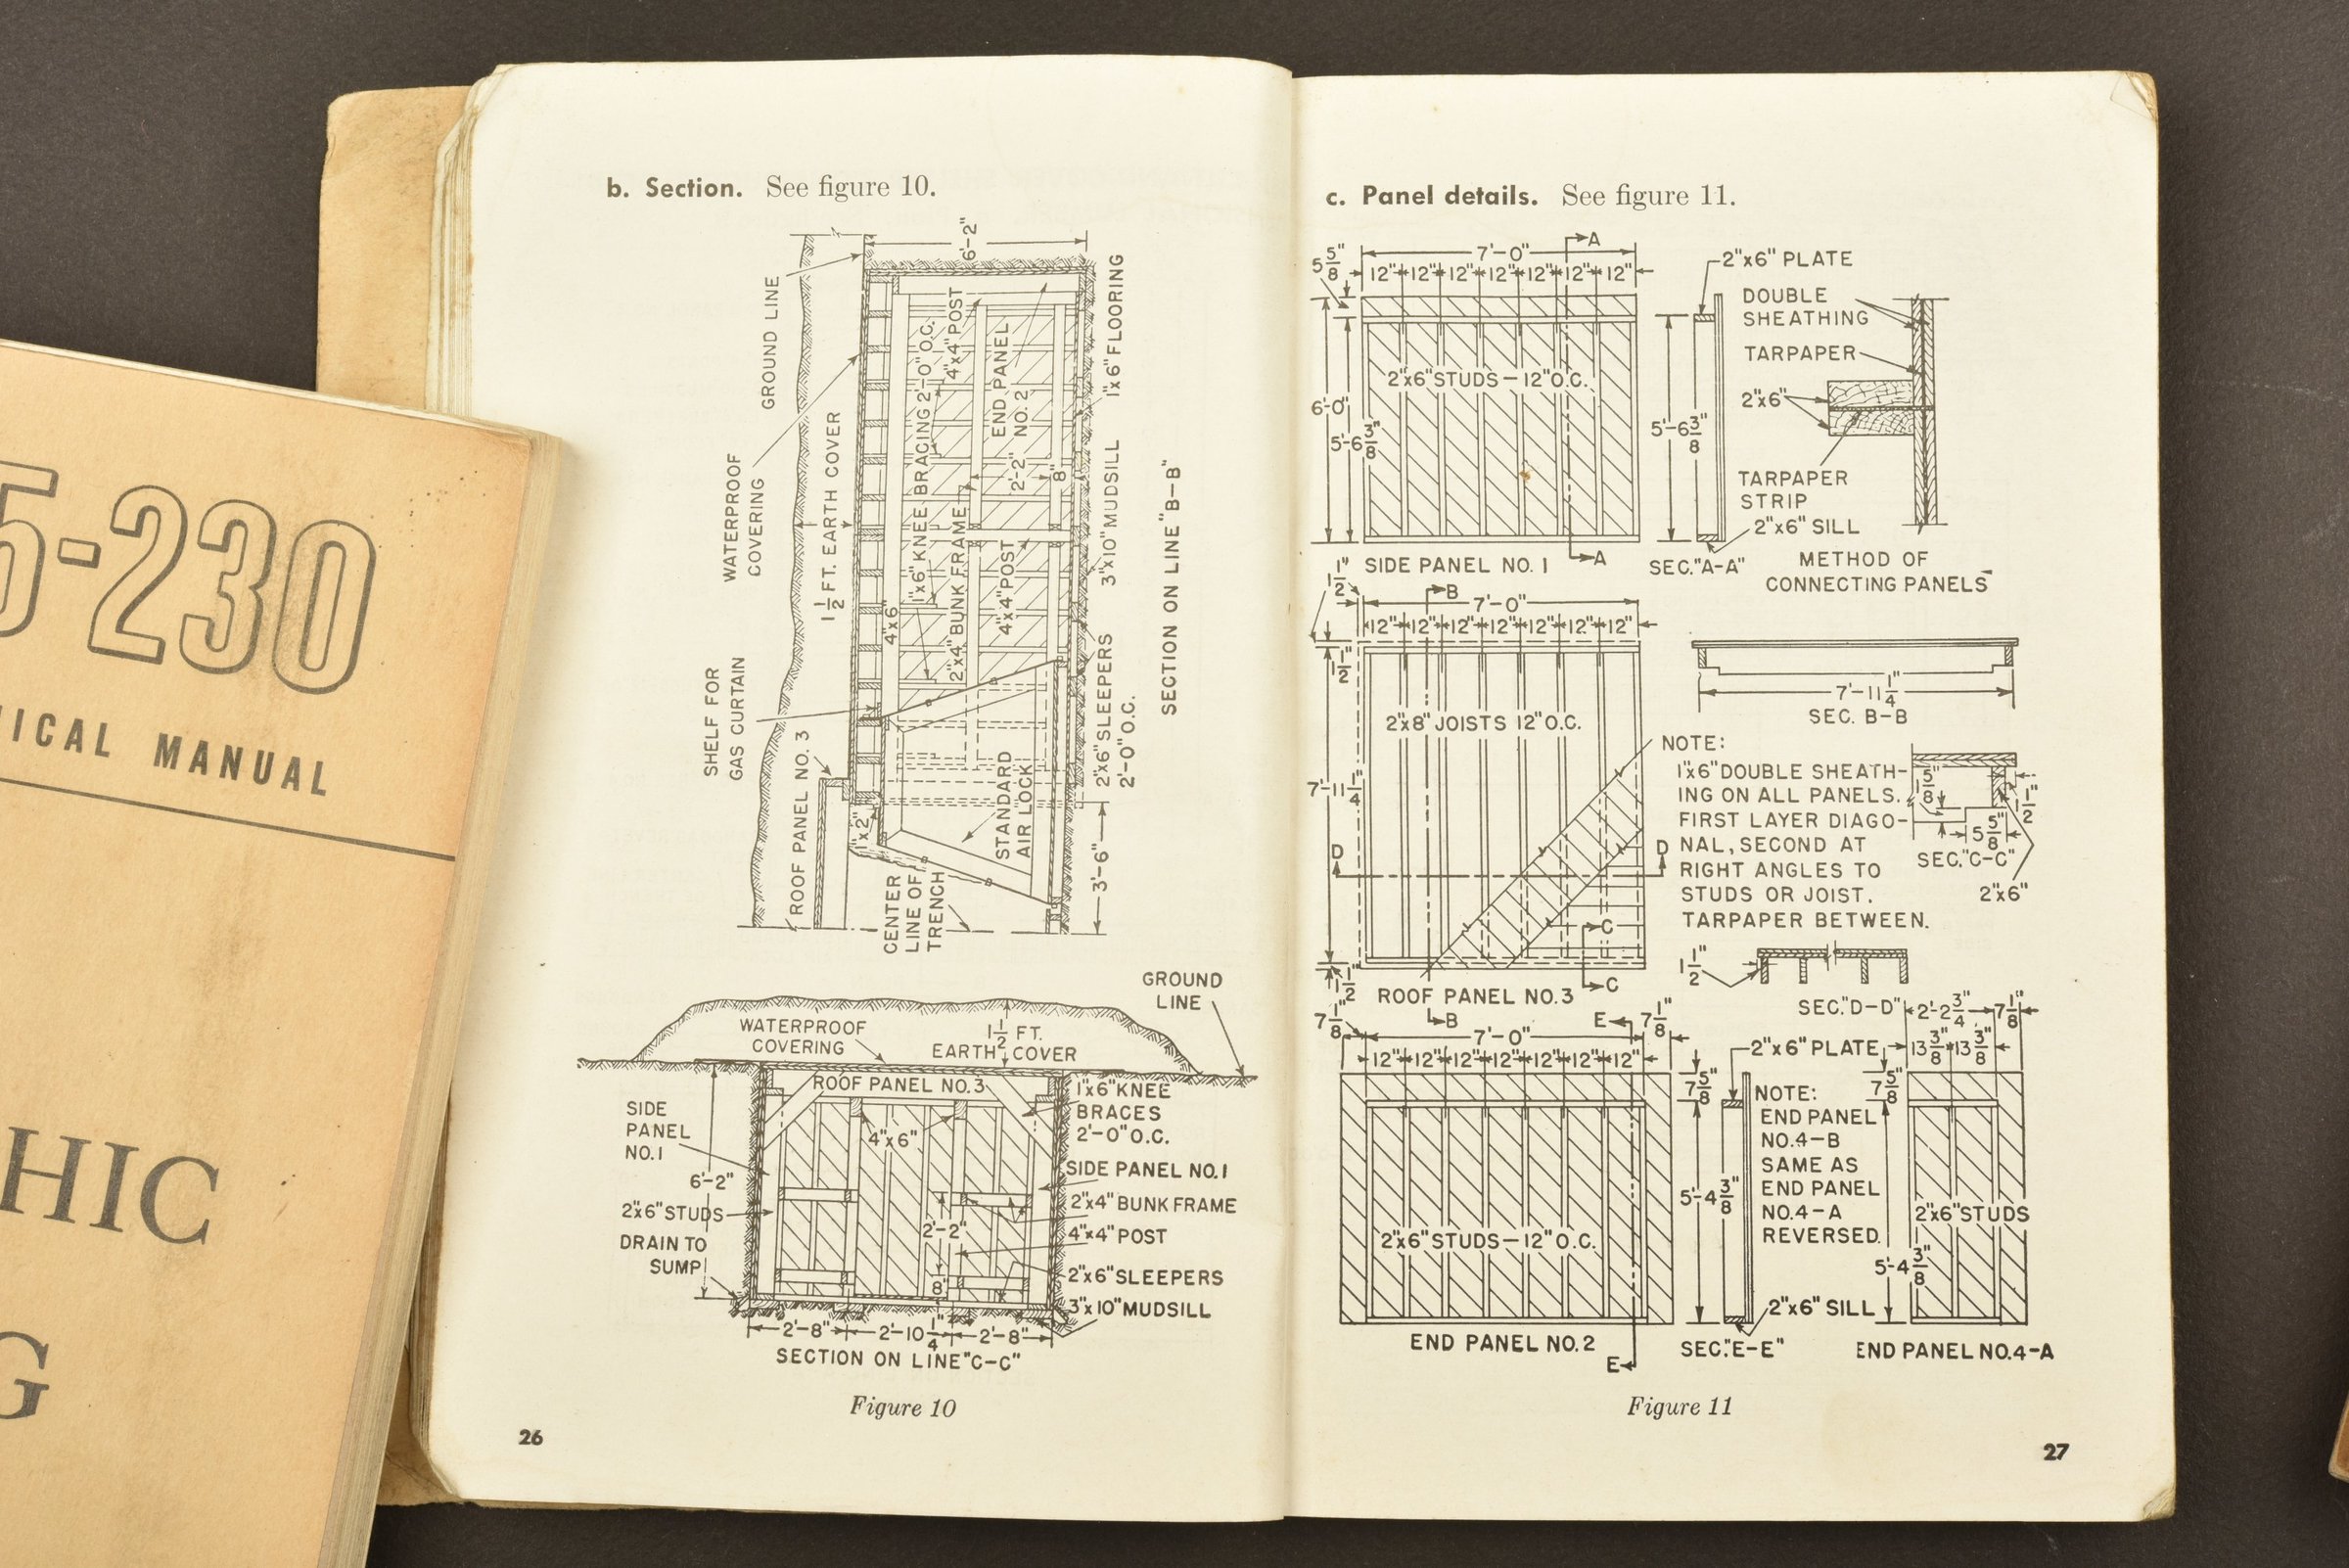 5-230
ICAL MANUAL
HIC
G
b. Section. See figure 10.
6'-2"
GROUND LINE
WATERPROOF
COVERING
1 1/2 FT. EARTH COVER
SHELF FOR
GAS CURTAIN
ROOF PANEL NO. 3
4"x6"
1"x6" KNEE BRACING 2'-0" O.C.
2"x4" BUNK FRAME
4"x4" POST
4"x4" POST
END PANEL
NO. 2
2'-2"
8"
1"x6" FLOORING
3"x10" MUDSILL
2"x6" SLEEPERS
2'-0" O.C.
STANDARD
AIR LOCK
1"x2"
CENTER
LINE OF
TRENCH
3'-6"
SECTION ON LINE "B-B"
GROUND
LINE
WATERPROOF
COVERING
1 1/2 FT.
EARTH COVER
ROOF PANEL NO.3
SIDE
PANEL
NO.1
6'-2"
2"x6" STUDS
DRAIN TO
SUMP
4"x6"
2'-2"
8"
1"x6" KNEE
BRACES
2'-0" O.C.
SIDE PANEL NO.1
2"x4" BUNK FRAME
4"x4" POST
2"x6" SLEEPERS
3"x10" MUDSILL
2'-8" 2'-10 1/4" 2'-8"
SECTION ON LINE "C-C"
Figure 10
26
c. Panel details. See figure 11.
5 5/8"
7'-0"
A
12" 12" 12" 12" 12" 12" 12"
2"x6" STUDS - 12" O.C.
6'-0"
5'-6 3/8"
A
SIDE PANEL NO. 1
2"x6" PLATE
5'-6 3/8"
2"x6" SILL
SEC. "A-A"
DOUBLE
SHEATHING
TARPAPER
2"x6"
TARPAPER
STRIP
METHOD OF
CONNECTING PANELS
1 1/2"
B
7'-0"
12" 12" 12" 12" 12" 12" 12"
1 1/2"
2"x8" JOISTS 12" O.C.
7'-11 1/4"
D D
C
C
1 1/2"
ROOF PANEL NO.3
B
7'-11 1/4"
SEC. B-B
NOTE:
1"x6" DOUBLE SHEATH-
ING ON ALL PANELS.
FIRST LAYER DIAGO-
NAL, SECOND AT
RIGHT ANGLES TO
STUDS OR JOIST.
TARPAPER BETWEEN.
1 5/8"
1 1/2"
5 5/8"
SEC. "C-C"
2"x6"
1 1/2"
SEC. "D-D"
7 1/8"
7'-0"
E
7 1/8"
12" 12" 12" 12" 12" 12" 12"
2"x6" STUDS - 12" O.C.
END PANEL NO.2
E
2"x6" PLATE
7 5/8"
5'-4 3/8"
2"x6" SILL
SEC. "E-E"
NOTE:
END PANEL
NO.4-B
SAME AS
END PANEL
NO.4-A
REVERSED.
2'-2 3/4" 7 1/8"
13 3/8" 13 3/8"
7 5/8"
2"x6" STUDS
5'-4 3/8"
END PANEL NO.4-A
Figure 11
27